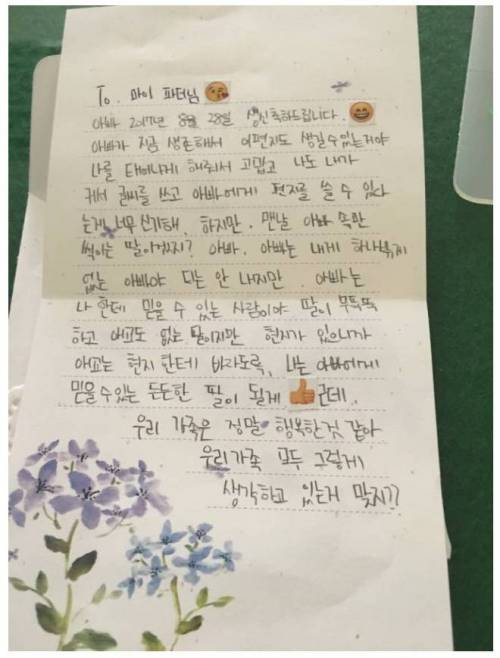 To. 마이 파더님
아빠 2017년 8월 28일 생신축하드립니다.
아빠가 지금 생존해서 이편지도 생길수있는거야
나를 태어나게 해줘서 고맙고 나도 내가
커서 글씨를 쓰고 아빠에게 편지를 쓸 수 있다
는게 너무 신기해, 하지만, 맨날 아빠 속만
썩이는 딸이겠지? 아빠, 아빠는 내게 하나밖에
없는 아빠야 티는 안 내지만, 아빠는
나한테 믿을 수 있는 사람이야 딸이 무뚝뚝
하고 애교도 없는 딸이지만 현지가 있으니까
애교는 현지한테 바라도록, 나는 아빠에게
믿을수있는 든든한 딸이 될게 근데..
우리 가족은 정말 행복한것 같아
우리가족 모두 그렇게
생각하고 있는거 맞지??